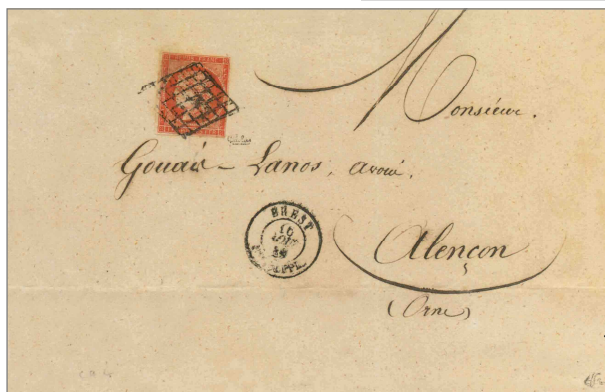 Monsieur.
Gouais - Lanos, avoué.
BREST
10
AOUT
Alençon
(Orne)